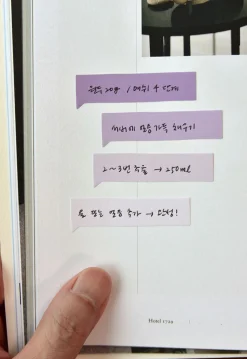 원두 20g / 분쇄 4 단계
서버에 얼음 가득 채우기
2~3번 추출 → 250ml
물 또는 얼음 추가 → 완성!
Hotel 1729